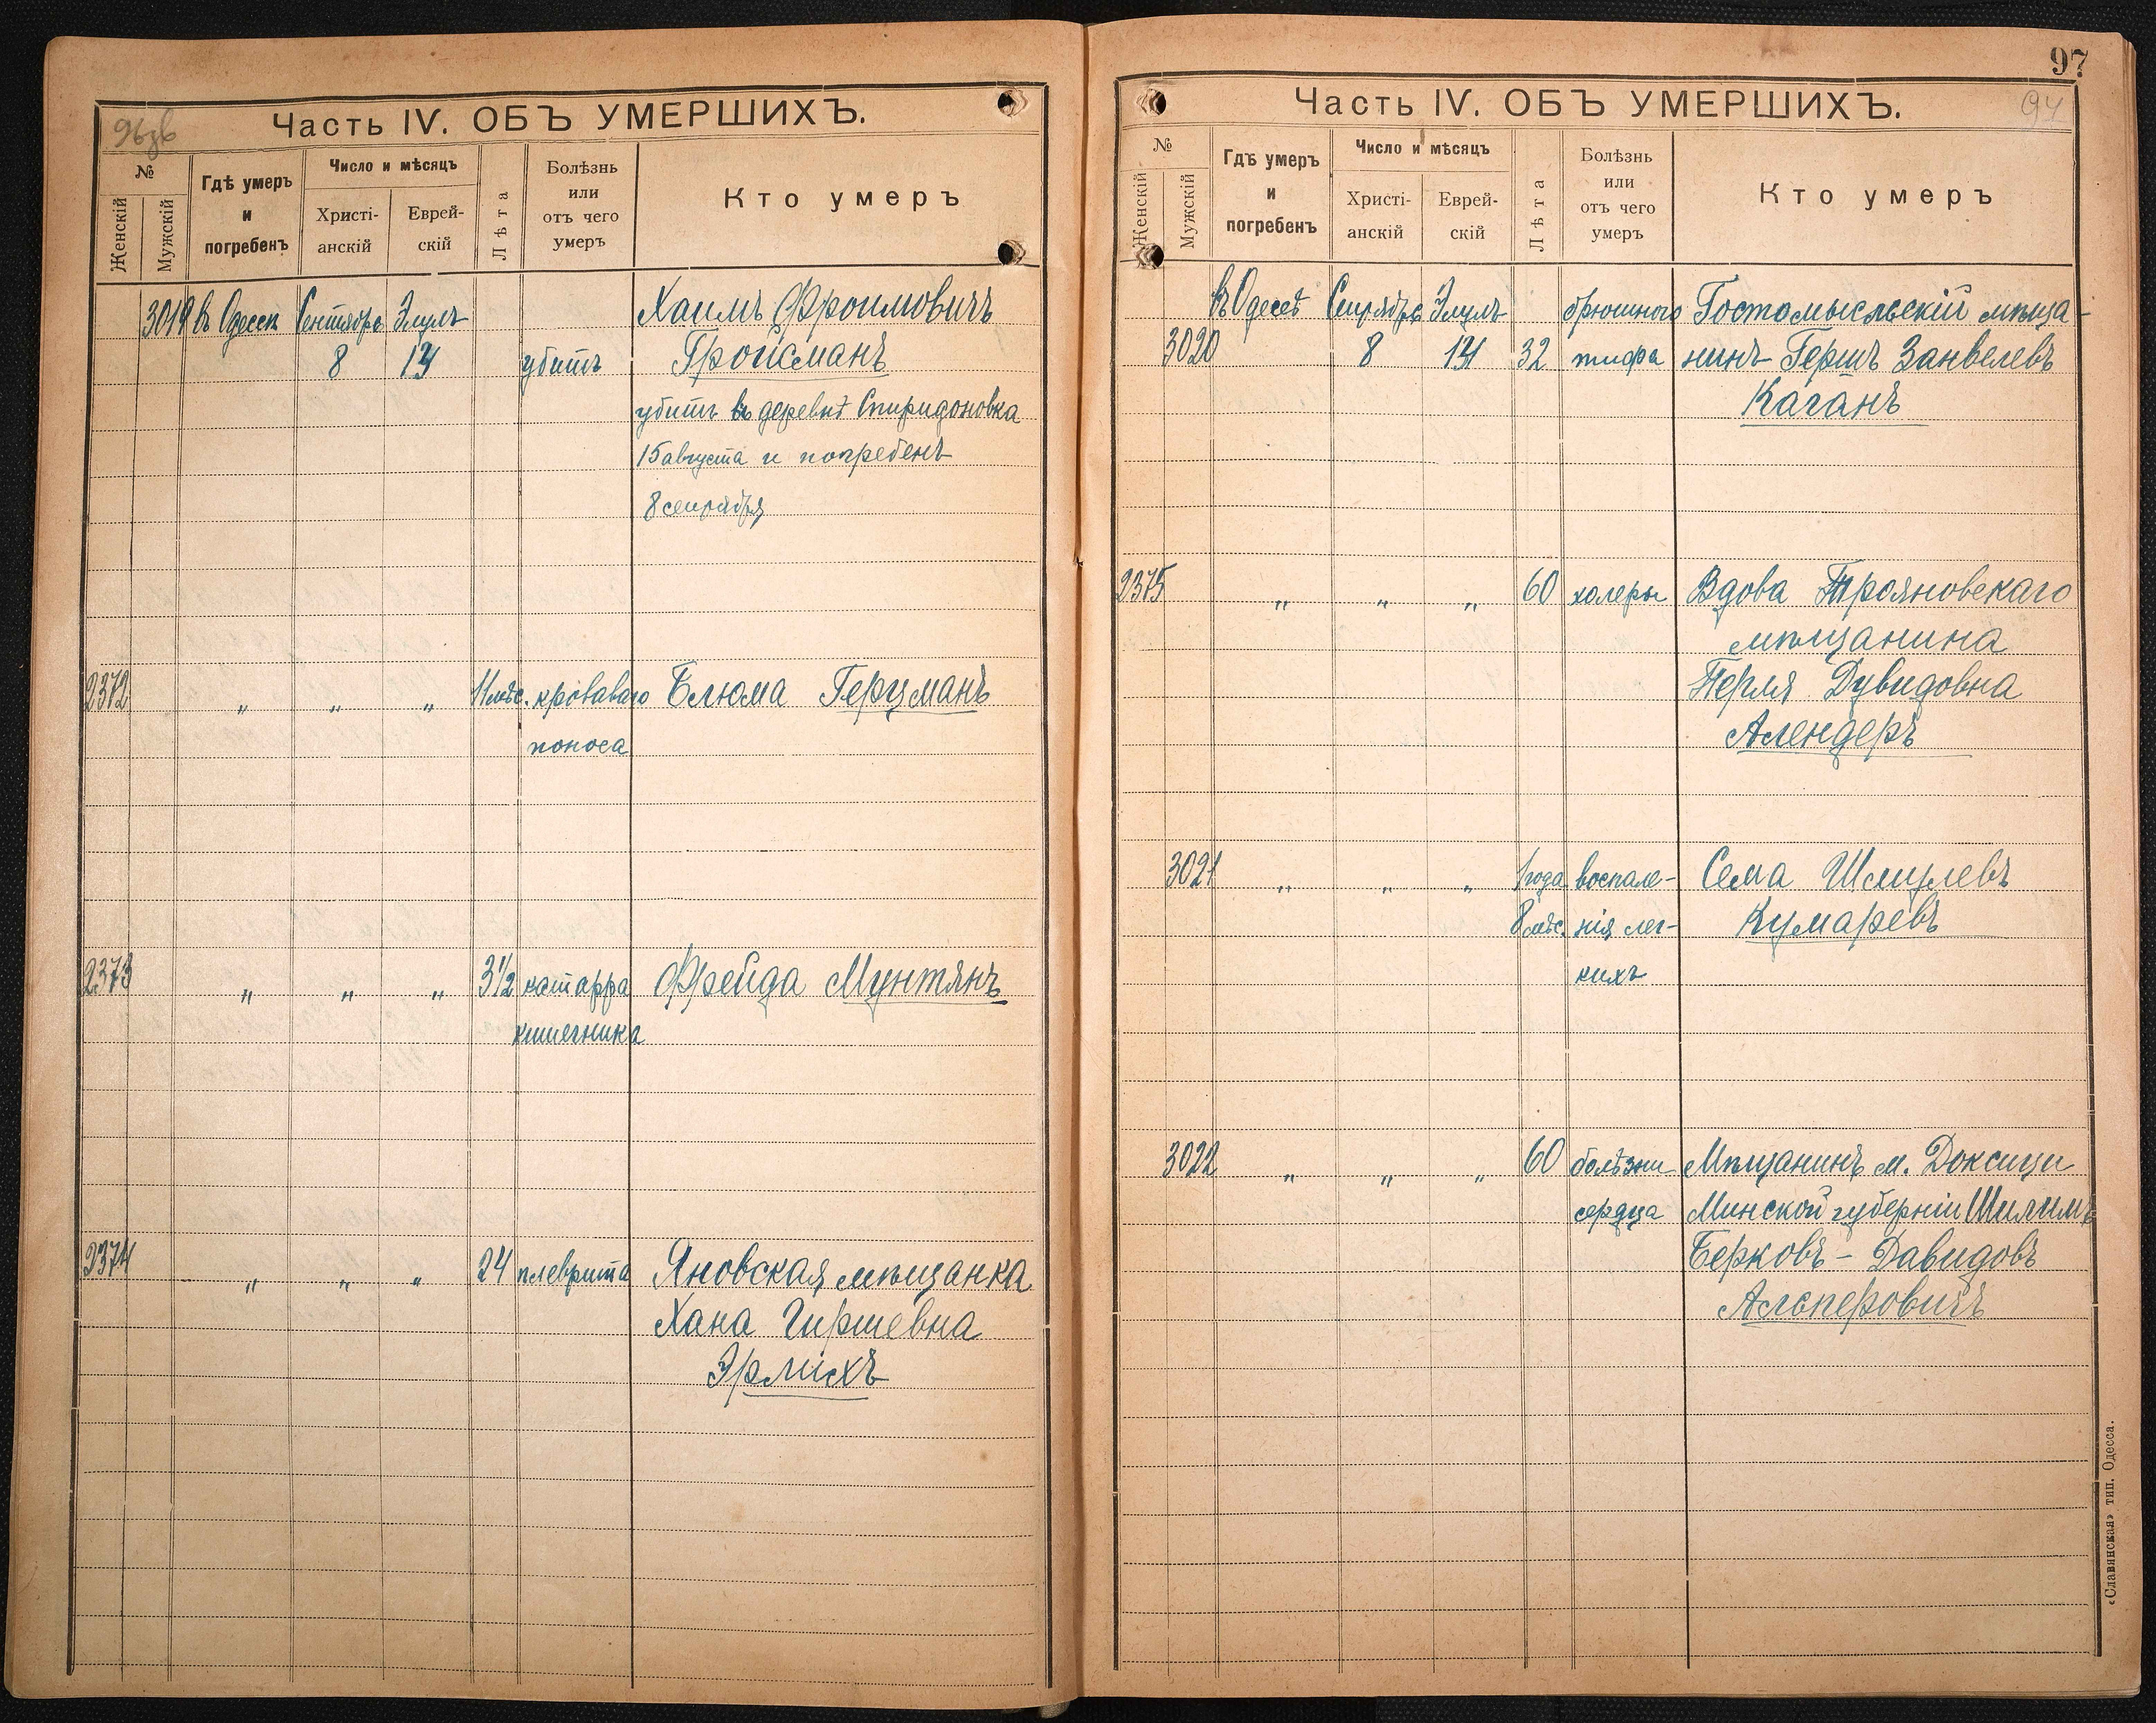 Часть IV. ОБЪ УМЕРШИХЪ.
№
Женскій
Мужскій
Гдѣ умеръ
и
погребенъ
Число и мѣсяцъ
Христі-
анскій
Еврей-
скій
Лѣта
Болѣзнь
или
отъ чего
умеръ
Кто умеръ
3019 въ Одессѣ Сентября Элулъ Хаимъ Фроимовичъ
8 14 убитъ Гройсманъ
убитъ въ деревнѣ Спиридоновка
15 августа и погребенъ
8 сентября
2372 " " " 11 мѣс. кроваваго Блюма Герцманъ
поноса
2373 " " " 3½ катарра Фрейда Мунтянъ
кишечника
2374 " " " 24 плеврита Яновская мѣщанка
Хана Гиршевна
Эрлихъ
97
Часть IV. ОБЪ УМЕРШИХЪ.
№
Женскій
Мужскій
Гдѣ умеръ
и
погребенъ
Число и мѣсяцъ
Христі-
анскій
Еврей-
скій
Лѣта
Болѣзнь
или
отъ чего
умеръ
Кто умеръ
въ Одессѣ Сентября Элулъ брюшного Гостомысльскій мѣща-
3020 8 14 32 тифа нинъ Гершъ Занвелевъ
Каганъ
2375 " " " 60 холеры Вдова Трояновскаго
мѣщанина
Перля Дувидовна
Алендеръ
3021 " " " 1 года воспале- Сема Шмулевъ
8 мѣс. нія лег- Кумаревъ
кихъ
3022 " " " 60 болѣзни Мѣщанинъ м. Докшицы
сердца Минской губерніи Шилимъ
Берковъ - Давидовъ
Альперовичъ
«Славянская» тип. Одесса.